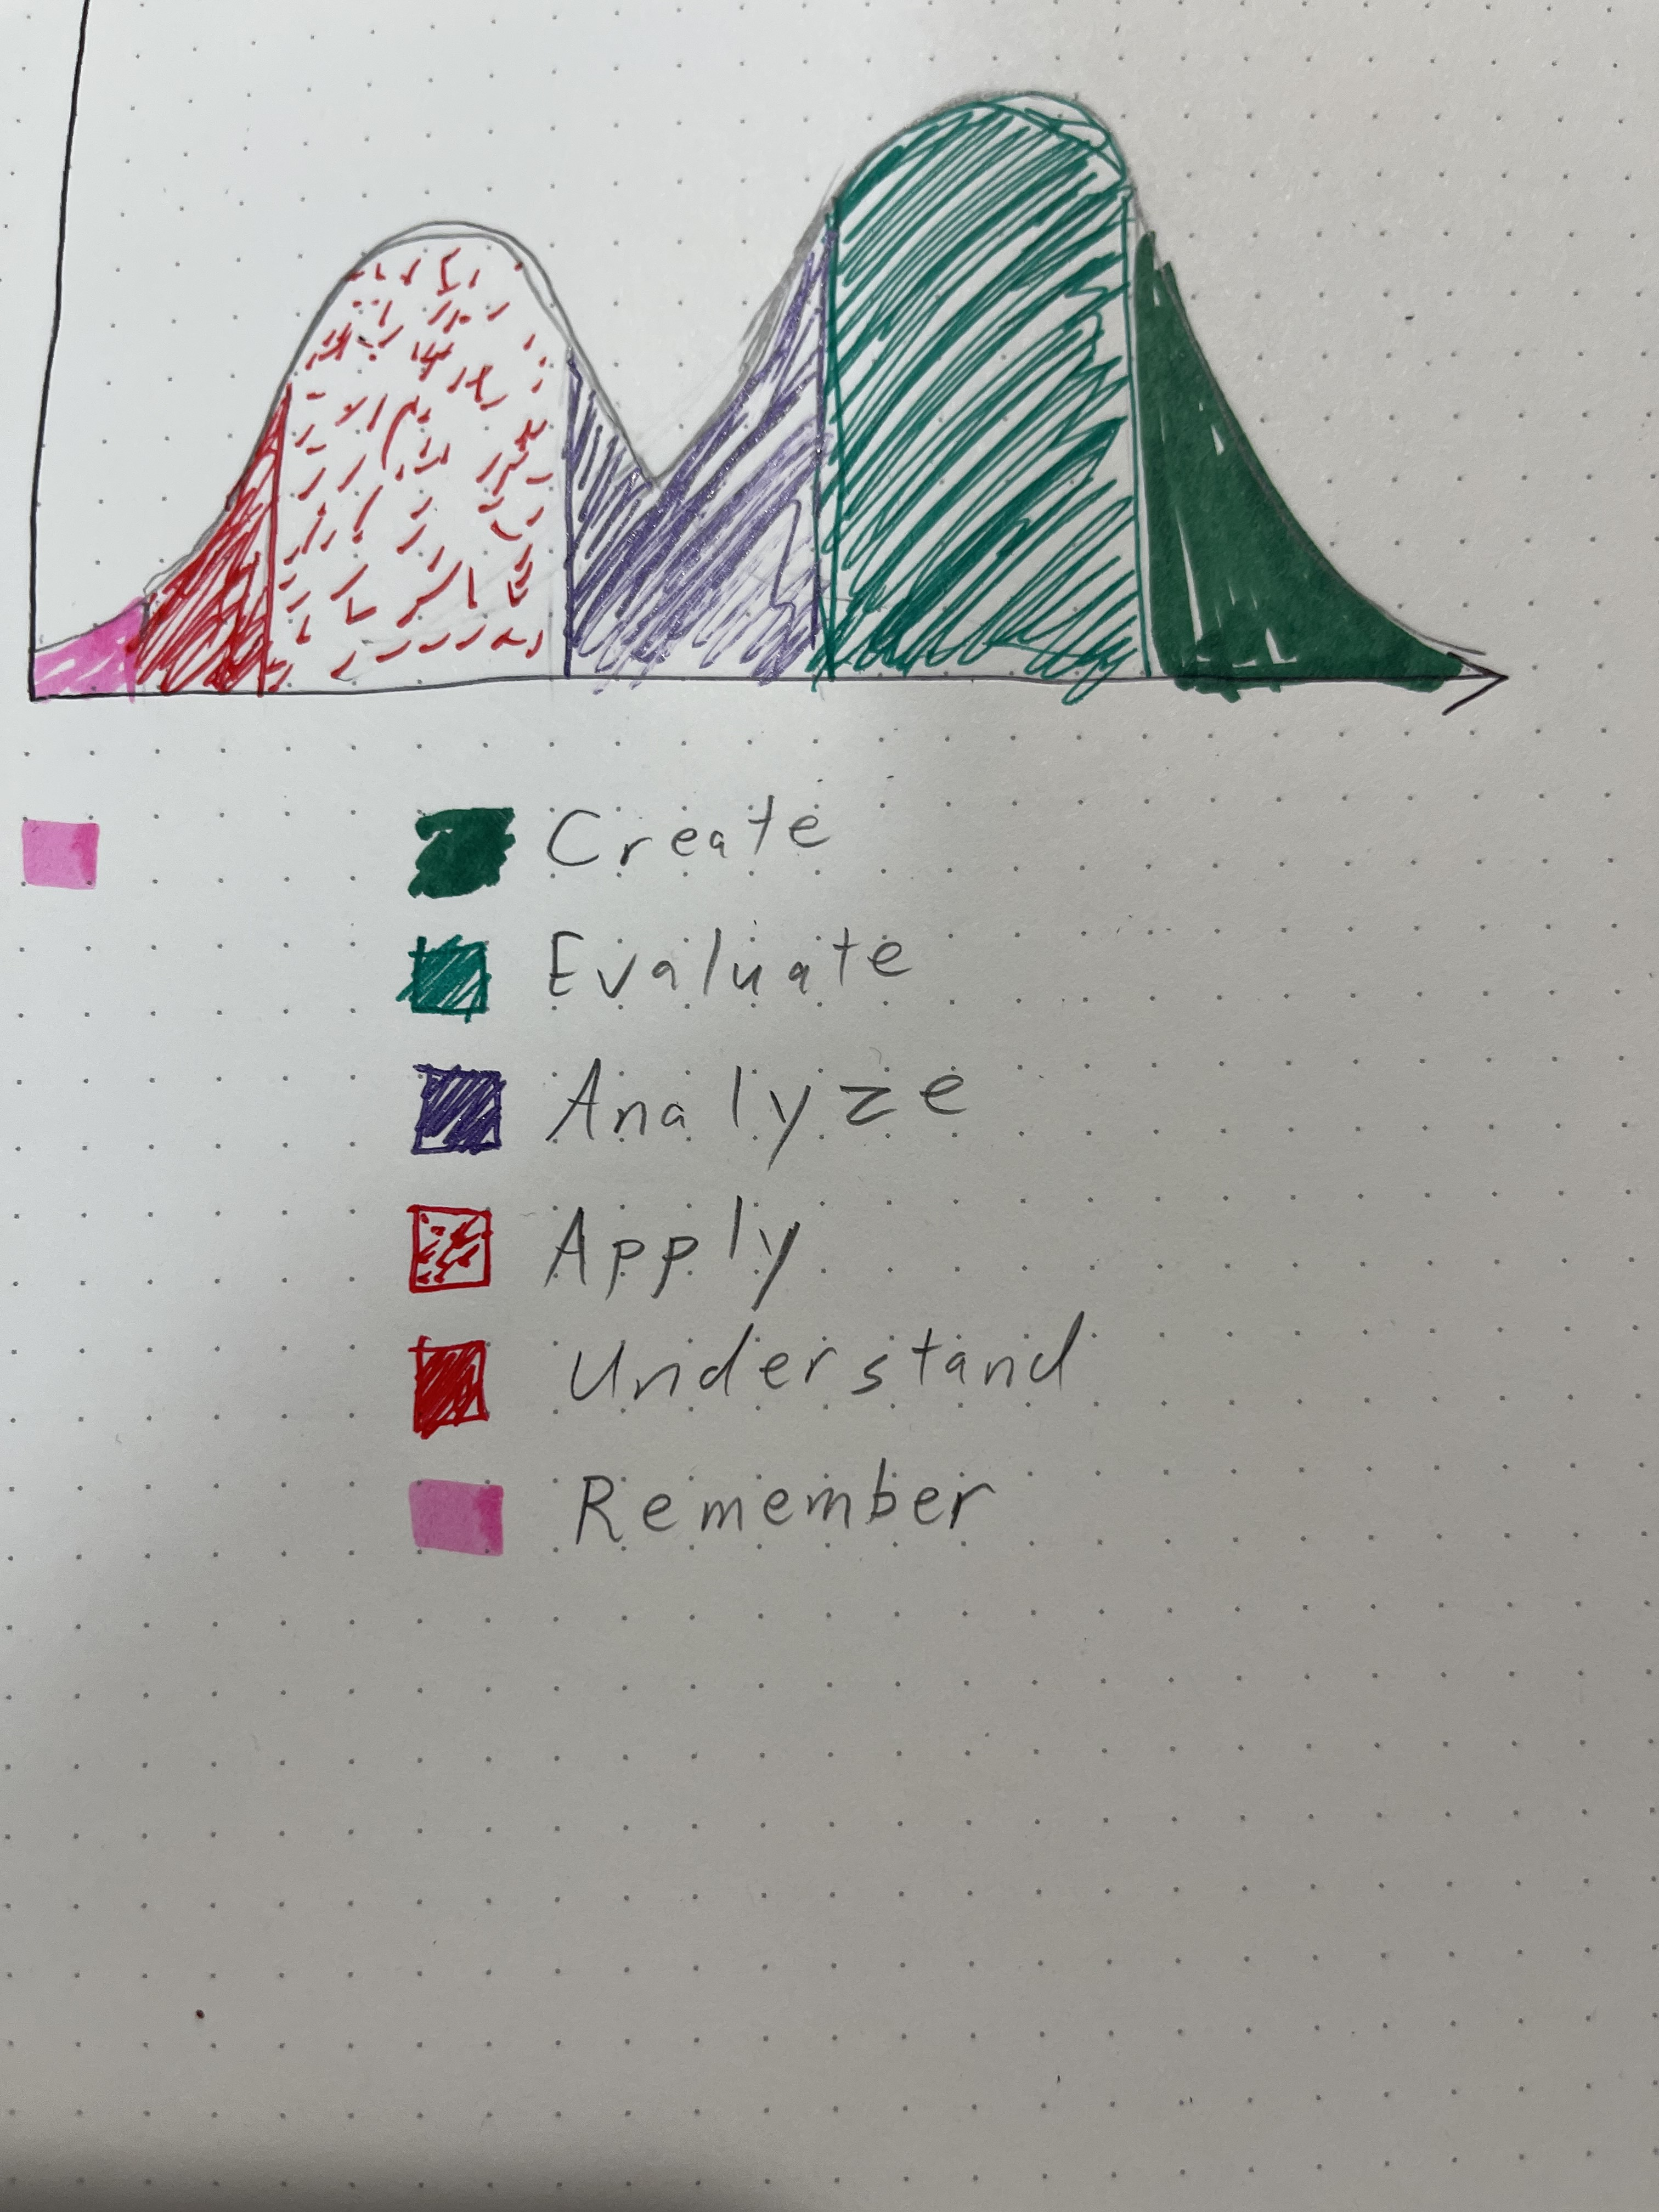 Create
Evaluate
Analyze
Apply
Understand
Remember